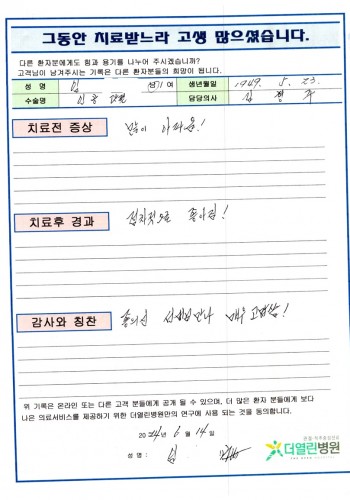 그동안 치료받느라 고생 많으셨습니다.
다른 환자분에게도 힘과 용기를 나누어 주시겠습니까?
고객님이 남겨주시는 기록은 다른 환자분들의 희망이 됩니다.
성 명 임 남/여 생년월일 1949. 5. 23.
수술명 인공관절 담당의사 김
치료전 증상 많이 아파요!
치료후 경과 점차적으로 좋아짐!
감사와 칭찬 좋으신 선생님만나 매우 고맙습!
위 기록은 온라인 또는 다른 고객 분들에게 공개 될 수 있으며, 더 많은 환자 분들에게 보다
나은 의료서비스를 제공하기 위한 더열린병원만의 연구에 사용 되는 것을 동의합니다.
2024년 6월 14일
성 명 : 임
관절·척추중점진료
더열린병원